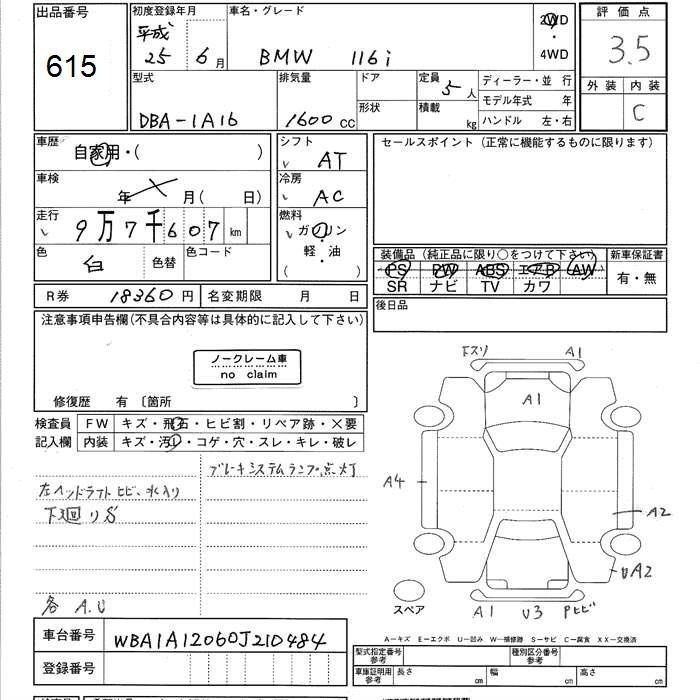 出品番号
615
初度登録年月
平成
25 年 6 月
車名・グレード
BMW 116i
2WD
・
4WD
評価点
3.5
外装 内装
C
型式
DBA-1A16
排気量
1600 cc
ドア
形状
定員
5 人
積載
kg
ディーラー・並 行
モデル年式 年
ハンドル 左・右
車歴
自家用・( )
車検
年 月 ( 日)
走行
9万7千607 km
色
白
色替
色コード
シフト
AT
冷房
AC
燃料
ガソリン
軽・油
( )
セールスポイント (正常に機能するものに限ります)
装備品 (純正品に限り○をつけて下さい)
PS PW ABS エアB AW
SR ナビ TV カワ
新車保証書
有・無
R券 18360 円
名変期限 月 日
後日品
注意事項申告欄(不具合内容等は具体的に記入して下さい)
ノークレーム車
no claim
修復歴 有 〔箇所 〕
検査員
記入欄
FW キズ・飛石・ヒビ割・リペア跡・×要
内装 キズ・汚れ・コゲ・穴・スレ・キレ・破レ
ブレーキシステムランプ点灯
左ヘッドライト ヒビ、水入り
下廻りS
各 A.U
下スリ A1
A1
A4
A2
UA2
スペア
A1 U3 Pヒビ
A―キズ E―エクボ U―凹み W―補修跡 S―サビ C―腐食 XX―交換済
車台番号 WBA1A12060J210484
登録番号
型式指定番号
参考
種別区分番号
参考
車庫証明用
参考
長さ cm 幅 cm 高さ cm